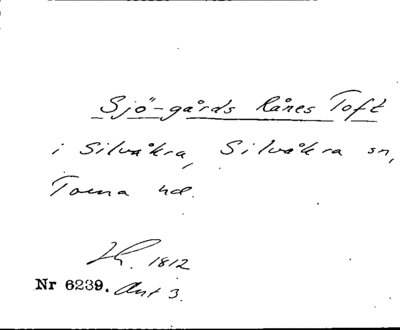 Sjö-gårds Rånes Toft
i Silvåkra, Silvåkra sn,
Torna hd.
1812
Nr 6239. Akt 3.